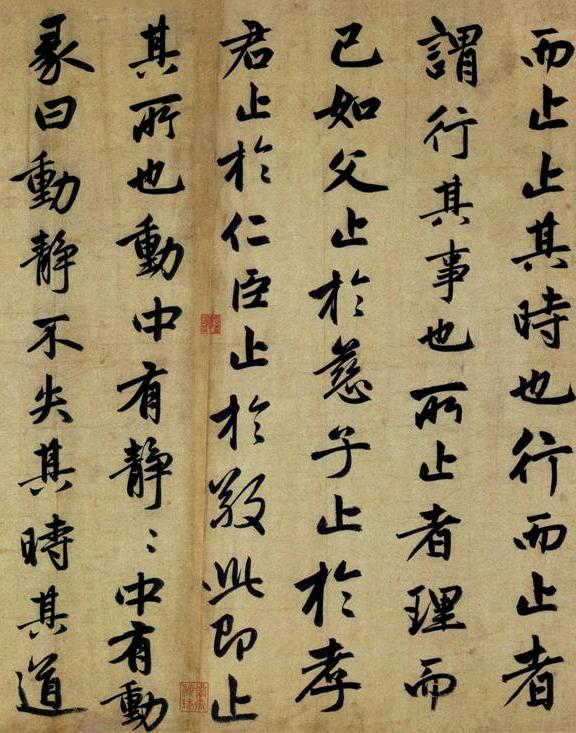 而止止其時也行而止者
謂行其事也所止者理而
已如父止於慈子止於孝
君止於仁臣止於敬此即止
其所也動中有静〻中有動
彖曰動静不失其時其道